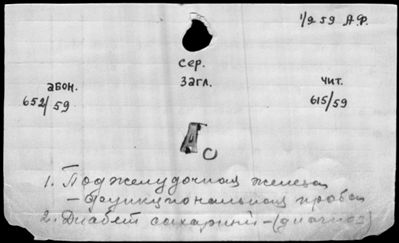 1/9 59 А.Ф.
сер.
абон. загл. чит.
652/59 615/59
1. Поджелудочная железа
- Функциональная проба
2. Диабет сахарный - (диагноз)